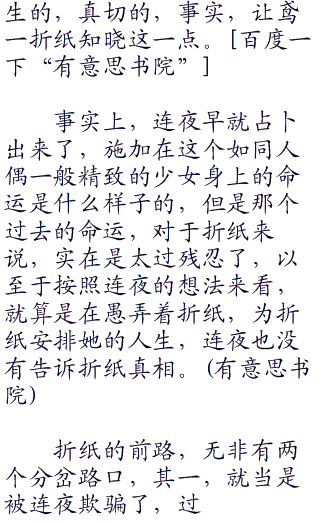 生的，真切的，事实，让鸢
一折纸知晓这一点。[百度一
下“有意思书院”]
事实上，连夜早就占卜
出来了，施加在这个如同人
偶一般精致的少女身上的命
运是什么样子的，但是那个
过去的命运，对于折纸来
说，实在是太过残忍了，以
至于按照连夜的想法来看，
就算是在愚弄着折纸，为折
纸安排她的人生，连夜也没
有告诉折纸真相。(有意思书
院)
折纸的前路，无非有两
个分岔路口，其一，就当是
被连夜欺骗了，过